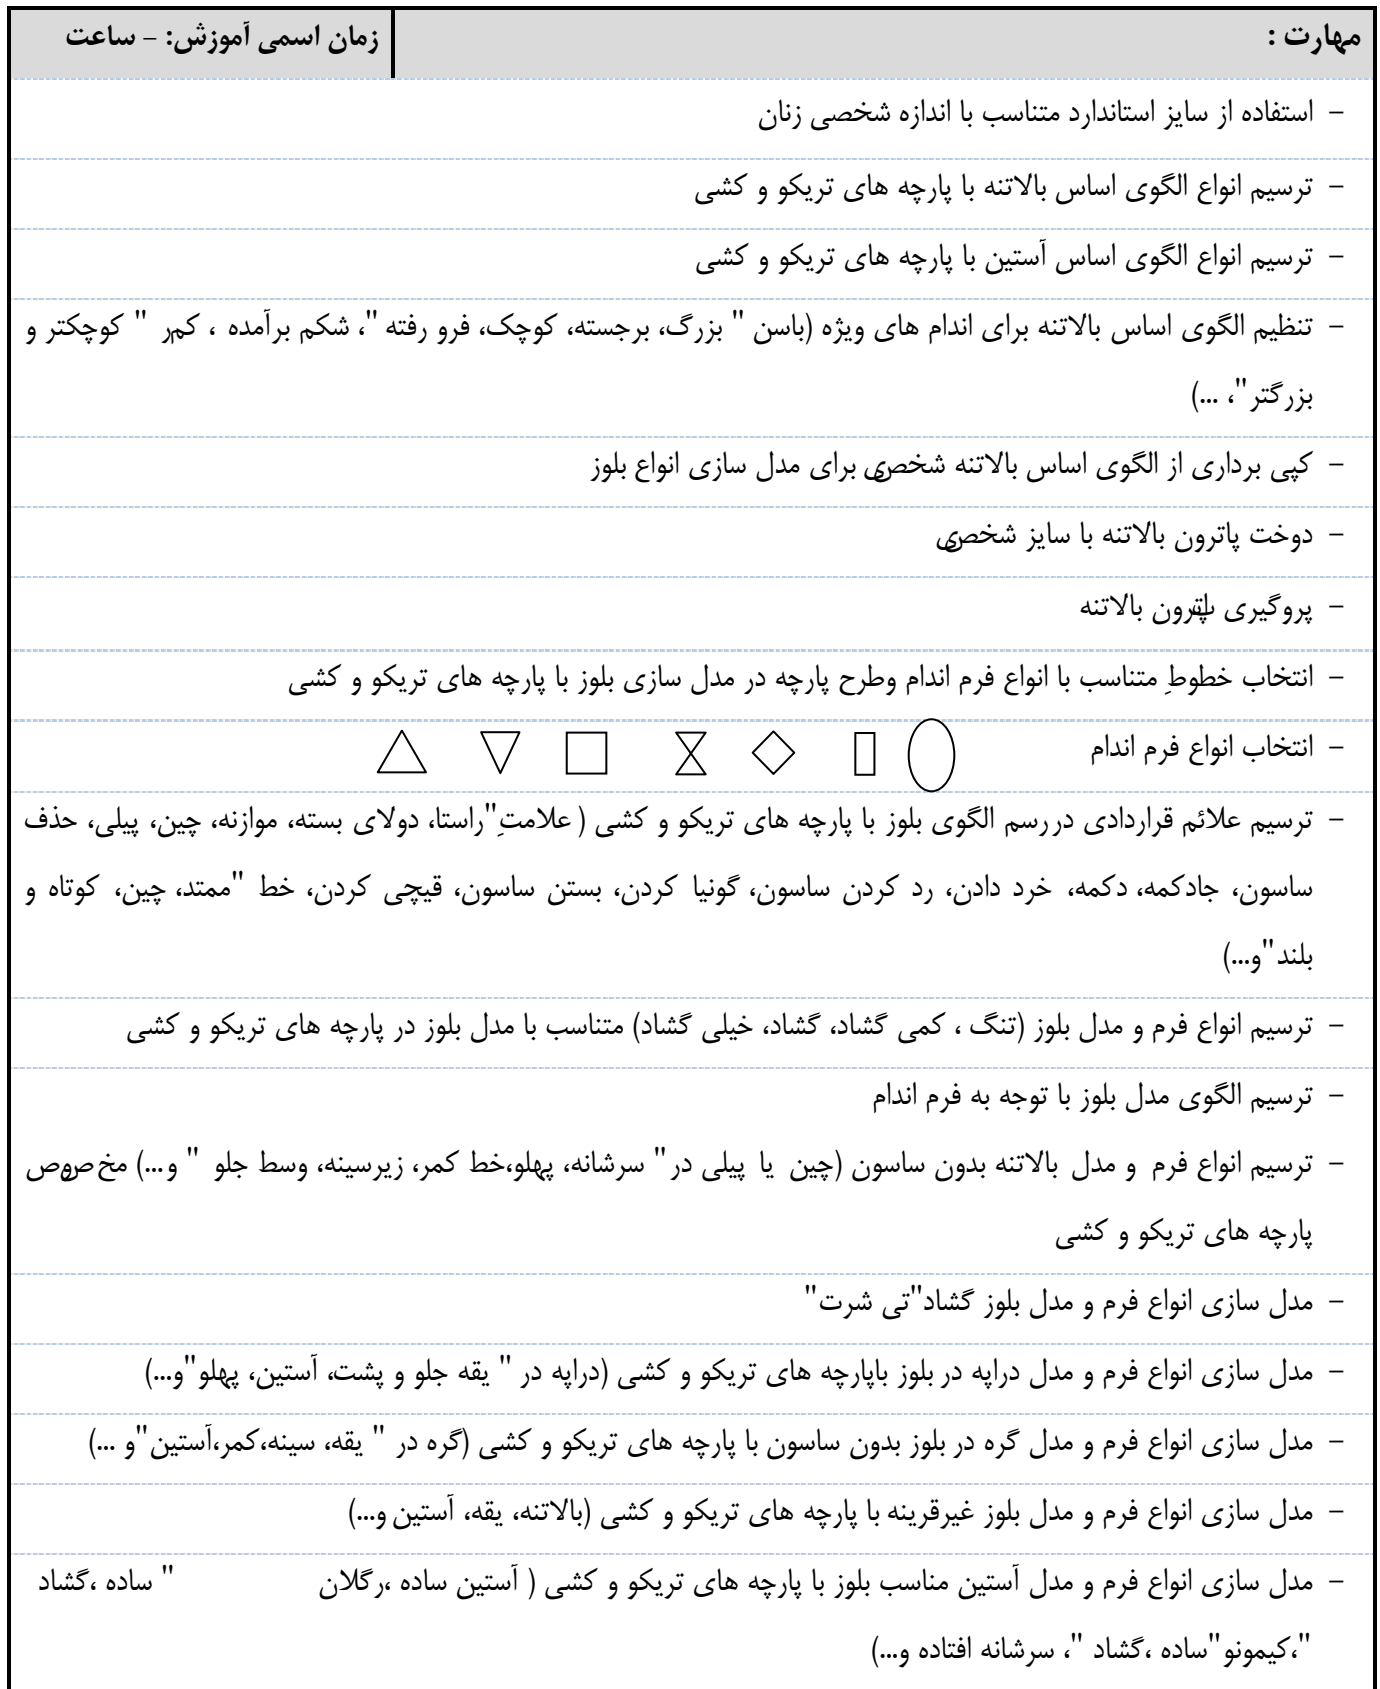 مهارت :
زمان اسمی آموزش: – ساعت
– استفاده از سایز استاندارد متناسب با اندازه شخصی زنان
– ترسیم انواع الگوی اساس بالاتنه با پارچه های تریکو و کشی
– ترسیم انواع الگوی اساس آستین با پارچه های تریکو و کشی
– تنظیم الگوی اساس بالاتنه برای اندام های ویژه (باسن " بزرگ، برجسته، کوچک، فرو رفته "، شکم برآمده ، کمر " کوچکتر و
بزرگتر"، ...)
– کپی برداری از الگوی اساس بالاتنه شخصی برای مدل سازی انواع بلوز
– دوخت پاترون بالاتنه با سایز شخصی
– پروگیری پاترون بالاتنه
– انتخاب خطوطِ متناسب با انواع فرم اندام وطرح پارچه در مدل سازی بلوز با پارچه های تریکو و کشی
– انتخاب انواع فرم اندام
– ترسیم علائم قراردادی دررسم الگوی بلوز با پارچه های تریکو و کشی ( علامتِ"راستا، دولای بسته، موازنه، چین، پیلی، حذف
ساسون، جادکمه، دکمه، خرد دادن، رد کردن ساسون، گونیا کردن، بستن ساسون، قیچی کردن، خط "ممتد، چین، کوتاه و
بلند"و...)
– ترسیم انواع فرم و مدل بلوز (تنگ ، کمی گشاد، گشاد، خیلی گشاد) متناسب با مدل بلوز در پارچه های تریکو و کشی
– ترسیم الگوی مدل بلوز با توجه به فرم اندام
– ترسیم انواع فرم و مدل بالاتنه بدون ساسون (چین یا پیلی در" سرشانه، پهلو،خط کمر، زیرسینه، وسط جلو " و...) مخصوص
پارچه های تریکو و کشی
– مدل سازی انواع فرم و مدل بلوز گشاد"تی شرت"
– مدل سازی انواع فرم و مدل دراپه در بلوز باپارچه های تریکو و کشی (دراپه در " یقه جلو و پشت، آستین، پهلو"و...)
– مدل سازی انواع فرم و مدل گره در بلوز بدون ساسون با پارچه های تریکو و کشی (گره در " یقه، سینه،کمر،آستین"و ...)
– مدل سازی انواع فرم و مدل بلوز غیرقرینه با پارچه های تریکو و کشی (بالاتنه، یقه، آستین و...)
– مدل سازی انواع فرم و مدل آستین مناسب بلوز با پارچه های تریکو و کشی ( آستین ساده ،رگلان " ساده ،گشاد
"،کیمونو"ساده ،گشاد "، سرشانه افتاده و...)